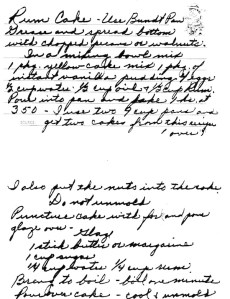 Rum Cake - Use Bundt Pan
Grease and spread bottom
with chopped pecans or walnuts.
In a mixing bowl mix
1 pkg. yellow cake mix 1 pkg. of
instant vanilla pudding 4 eggs
½ cup water ½ cup oil & ½ cup Rum.
Pour into pan and bake 1 hr. at
350 - I use two pans and
get two cakes from this recipe
over
I also put the nuts into the cake
Do not unmold
Puncture cake with fork and pour
glaze over - Glaze
1 stick butter or margarine
1 cup sugar
¼ cup water ¼ cup rum
Bring to boil - boil one minute
Pour over cake - cool & unmold